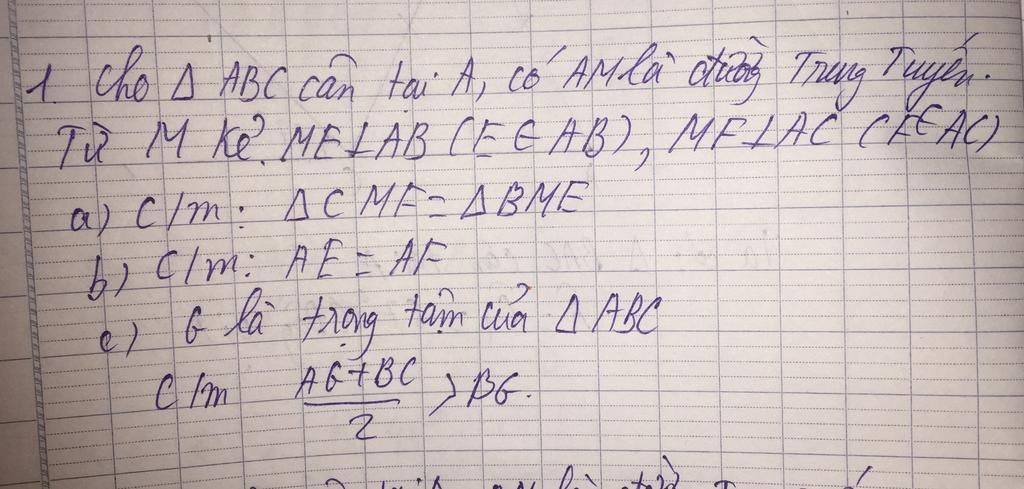 1. Cho Δ ABC cân tại A, có AM là đường Trung Tuyến.
Từ M kẻ. ME⊥AB (E∈AB), MF⊥AC (F∈AC)
a) C/m: ΔCMF = ΔBME
b) C/m: AE = AF
c) G là trọng tâm của Δ ABC
C/m (AG+BC)/2 > BG.